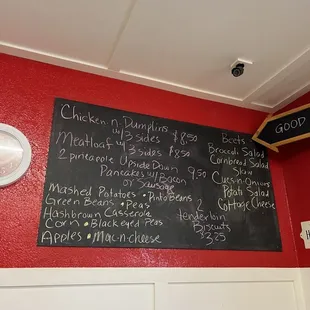 Chicken-n-Dumplins
w/3 sides $8.50
Meatloaf w/
3 sides $8.50
2 pineapple upside Down
Pancakes w/Bacon 9.50
or Sausage
Mashed Potatoes • Pinto Beans
Green Beans • Peas
Hashbrown Casserole
Corn • Black eyed Peas
Apples • Mac-n-cheese
2
tenderloin
Biscuits
$3.25
Beets
Broccoli Salad
Cornbread Salad
Slaw
Cucs-n-Onions
Potato Salad
Cottage Cheese
GOOD